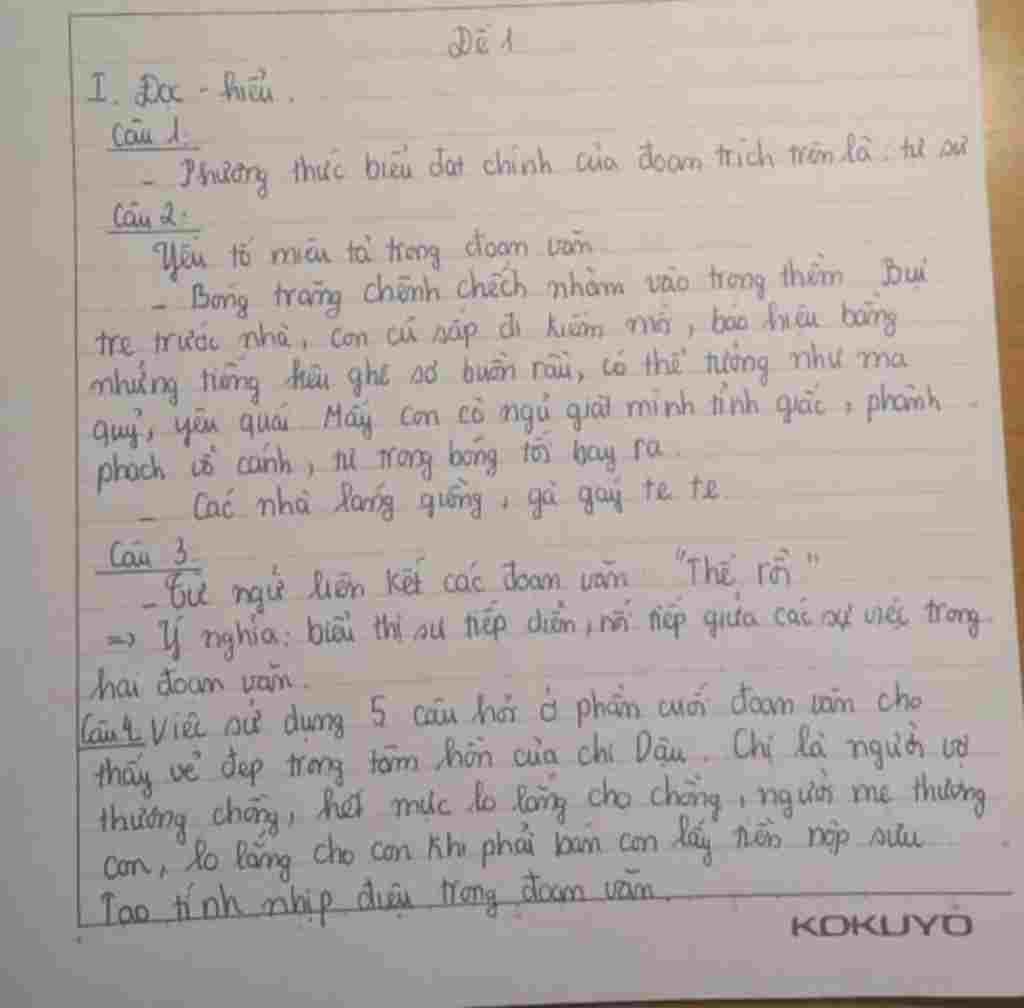 Đề 1
I. Đọc - hiểu.
Câu 1:
- Phương thức biểu đạt chính của đoạn trích trên là: tự sự
Câu 2:
Yếu tố miêu tả trong đoạn văn
- Bóng trăng chênh chếch nhòm vào trong thềm Bụi
tre trước nhà, con cú sắp đi kiếm mồi, báo hiệu bằng
những tiếng kêu ghê sợ buồn rầu, có thể tưởng như ma
quỷ, yêu quái Mấy con cò ngủ giật mình tỉnh giấc, phành
phạch vỗ cánh, từ trong bóng tối bay ra.
- Các nhà láng giềng, gà gáy te te
Câu 3.
- Từ ngữ liên kết các đoạn văn "Thế rồi"
=> Ý nghĩa: biểu thị sự tiếp diễn, nối tiếp giữa các sự việc trong
hai đoạn văn.
Câu 4. Việc sử dụng 5 câu hỏi ở phần cuối đoạn văn cho
thấy vẻ đẹp trong tâm hồn của chị Dậu. Chị là người vợ
thương chồng, hết mực lo lắng cho chồng, người mẹ thương
con, lo lắng cho con khi phải bán con lấy tiền nộp sưu
Tạo tính nhịp điệu trong đoạn văn.
KOKUYO